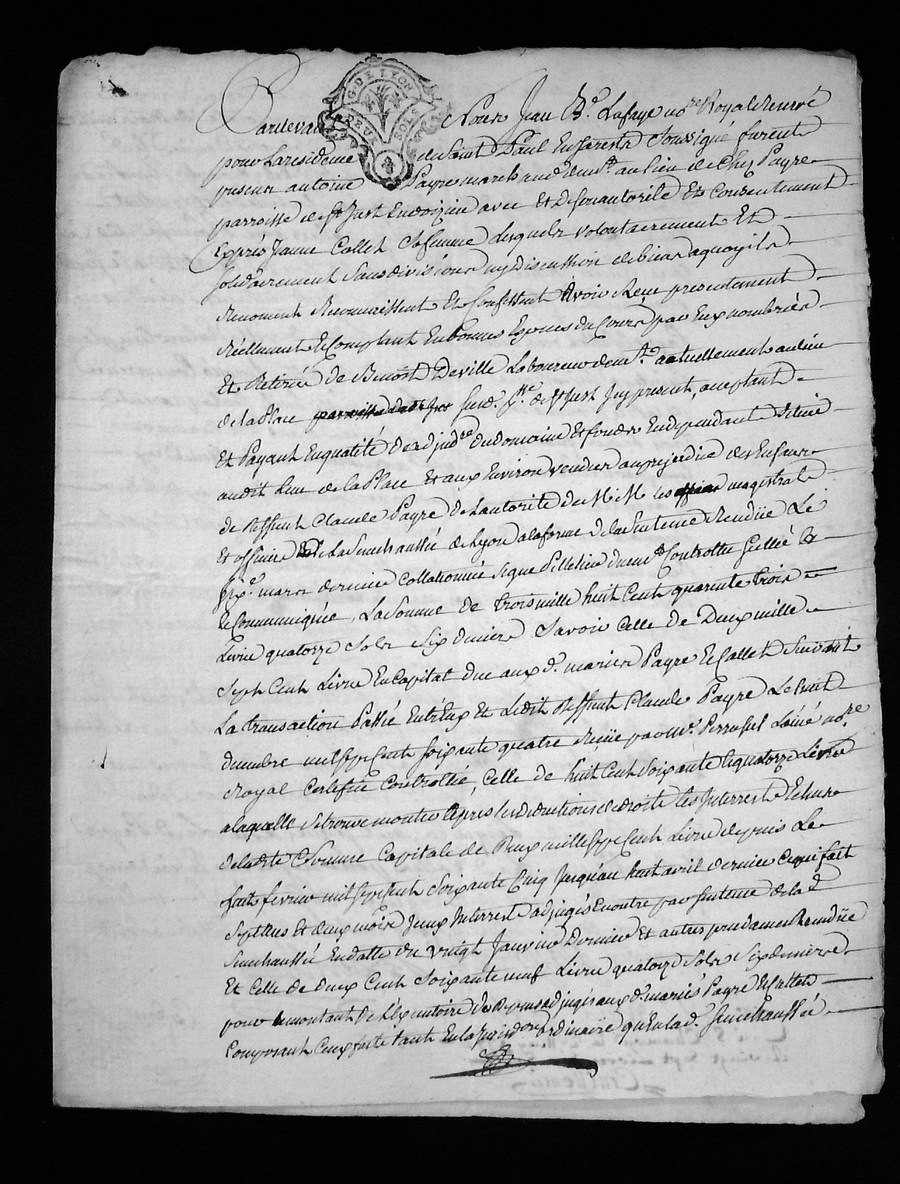 G. DE LYON
NEUF SOLS
Pardevant Nous Jean Bte Lafaye nore Royal Reservé
pour La residence de Saint Paul En Jarest Sousigné furent
presens antoine Payre march. rue demt. au lieu de Chez Payre
parroisse de St. Just En doizieu avec Et de Son autorité Et Consentement
Exprès Jeanne Callet Sa femme Lesquels volontairement Et
Solidairement Sans division ny discussion de biens a quoy ils
Renoncent Reconnaissent Et Confessent Avoir Reçu presentement
Réellement Et Comptant En bonnes Especes du Cours par Eux nombrées
Et Retirées de Benoît Deville Laboureur demt. actuellement au lieu
de la Place Susd. Psse de St Just Icy present, acceptant
Et Payant En qualité d'adjudre. du domaine Et fonds En dependant Situé
audit Lieu de la Place Et aux Environ vendus au prejudice des Enfans
de deffunt Claude Payre de L'autorité de M.M. les magistrats
Et officiers de La Senechaussée de Lyon a la forme de la Sentence Rendüe Le
six. mars dernier collationnée Signé Pelletier duement Controllée Scellée &
Communiquée, La Somme de trois mille huit Cent quarente trois
Livres quatorze Sols Six deniers Savoir Celle de Deux mille
Sept Cent Livres En Capital due aux d. mariés Payre Et Callet Suivant
La transaction Passée Entr'Eux Et Ledit deffunt Claude Payre Le huit
decembre mil sept Cent Soixante quatre Reçüe par Me. Perrussel Lainé nore.
Royal Controllée, Celle de huit Cent Soixante Et quatorze Livres
a laquelle Se trouve monter après les deductions de droit Les Interrests Echus
de ladite Somme Capitale de Deux mille sept Cent Livres depuis Le
fevrier mil sept Cent Soixante Cinq Jusqu'au huit avril dernier Ce qui fait
Sept ans Et deux mois Iceux Interrests adjugés Encontre par Sentence de la d.
Senechaussée En datte du vingt Janvier Dernier Et autres precedament Rendües
Et Celle de deux Cent Soixante neuf Livres quatorze Sols Six deniers
pour Le montant de L'Exécutoire de Depens adjugés aux d. mariés Payre Et Callet
Comprenant Ceux faits tant En la Jurisdon. ordinaire qu'En la d. Senechaussée